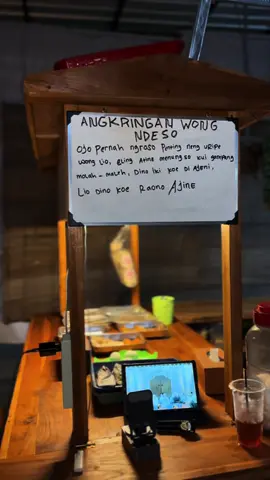 ANGKRINGAN WONG
NDESO
OJO PERNAH NGROSO PENTING NENG URIPE
WONG LIO, ELING ATINE MENUNGSO KUI GAMPANG
MOLAH-MALEH, DINO IKI KOE DI AJENI,
LIO DINO KOE RAONO AJINE